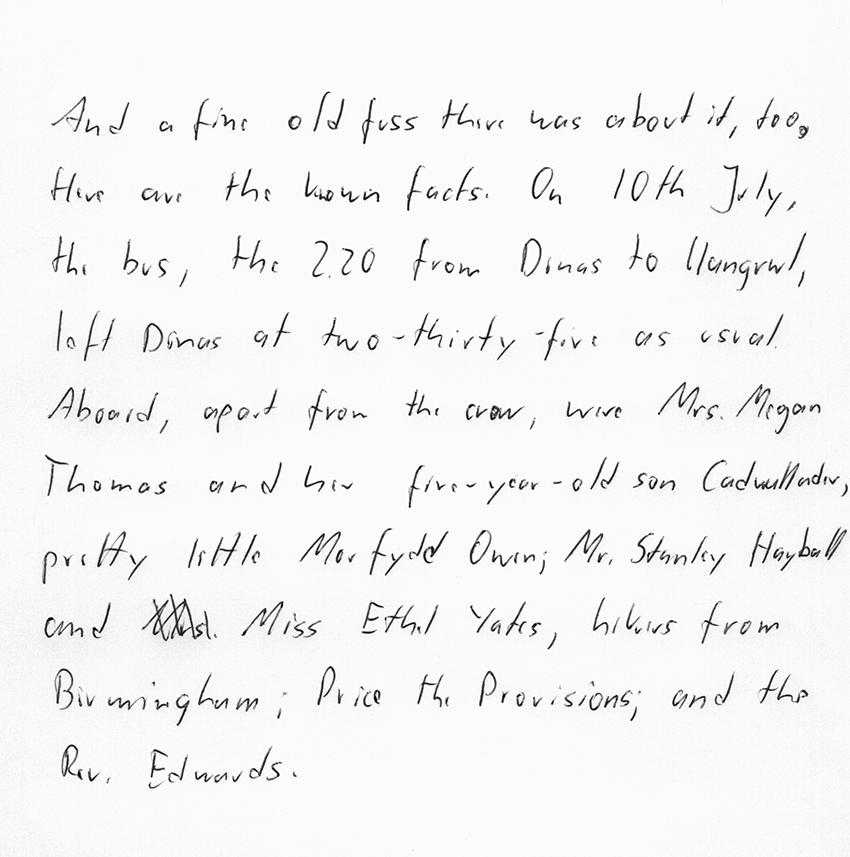 And a fine old fuss there was about it, too.
Here are the known facts. On 10th July,
the bus, the 2.20 from Dinas to Llangrwl,
left Dinas at two-thirty-five as usual.
Aboard, apart from the crew, were Mrs. Megan
Thomas and her five-year-old son Cadwallader,
pretty little Morfydd Owen; Mr. Stanley Hayball
and Miss Ethel Yates, hikers from
Birmingham; Price the Provisions; and the
Rev. Edwards.